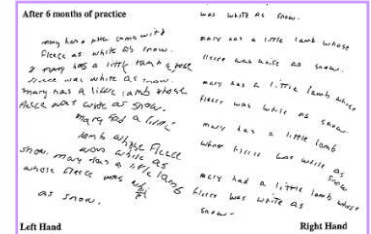 After 6 months of practice
mary had a little lamb with
fleece as white as snow.
mary has a little lamb whose
fleece was white as snow.
mary has a little lamb whose
fleece was white as snow.
mary had a little
lamb whose fleece
was white as
snow. mary has a little lamb
whose fleece was white
as snow.
Left Hand
was white as snow.
mary has a little lamb whose
fleece was white as snow.
mary has a little lamb whose
fleece was white as snow.
mary has a little lamb
whose fleece was white as
snow
mary had a little lamb whose
fleece was white as
snow.
Right Hand